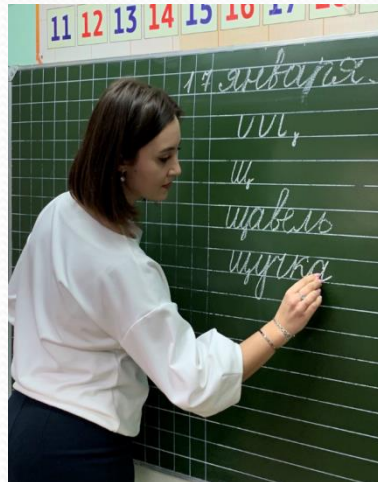 11 12 13 14 15 16 17
17 января.
щ
щавель
щучка